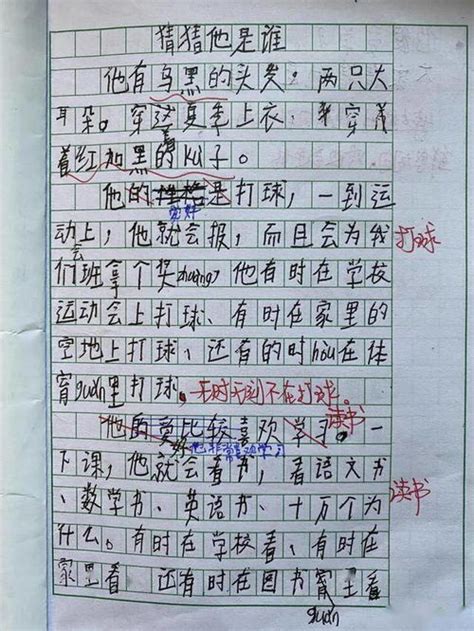 猜猜他是谁
他有乌黑的头发，两只大
耳朵。穿这夏季上衣、穿着
着红加黑的kù子。
他的性格是打球，一到运
爱好
动上，他就会报，而且会为我
会
打球
们班拿个奖zhuang，他有时在学校
运动会上打球、有时在家里的
空地上打球，还有的时hòu在体
育guǎn里打球。无时无刻不在打球。
他的爱比较喜欢学习。一
读书
好
他非常喜欢学习
下课，他就会看书，看语文书
、数学书、英语书、十万个为
读书
什么。有时在学校看、有时在
家里看 还有时在图书
看
guǎn